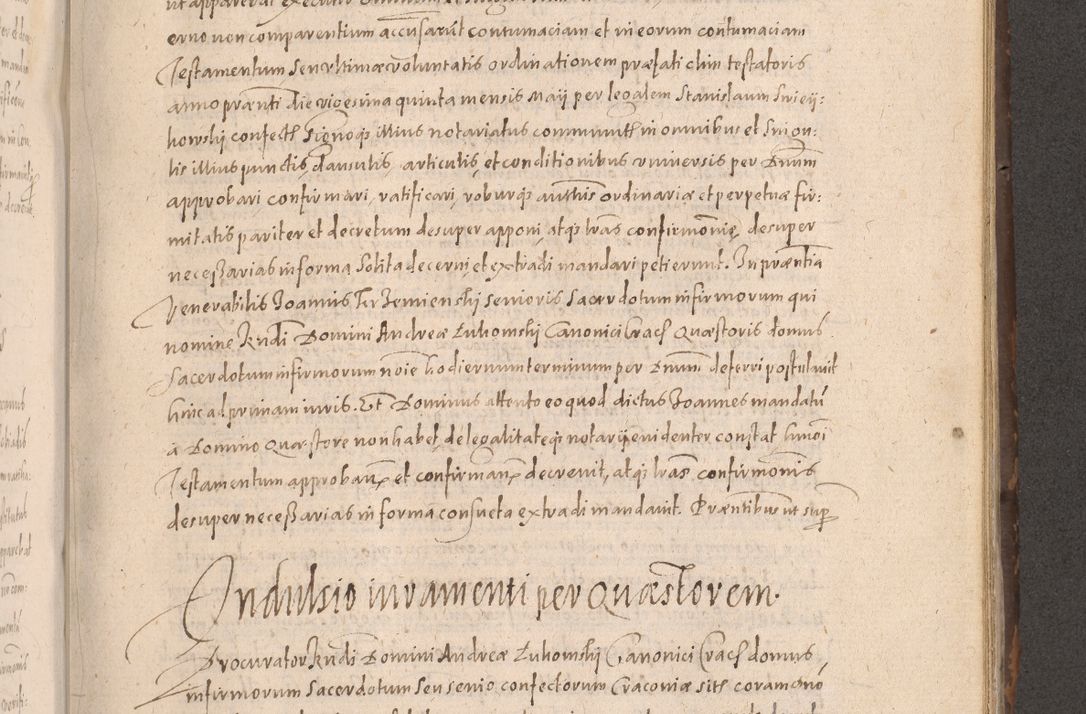 erno non comparentium accusarūt contumaciam et in eorum contumaciam
Testamentum seu ultimæ voluntatis ordinationem præfati olim testatoris
anno præn̄ti die vigesima quinta mensis Maij per legalem Stanislaum Swieij:
howskj confect̄ signoq; illius notariatus communit̄ in omnibus et singu:
lis illius punctis, clausulis, articulis, et conditionibus universis per Dnum̄
approbari, confirmari, ratificari, roburq; aut̄htis ordinariæ et perpetuæ fir:
mitatis pariter et decretum desuper apponi, atq; l̄ras confirmōnis, desuper
necessarias in forma solita decerni, et extradi mandari petierunt. In præn̄tia
Venerabilis Joannis Trzemienskj senioris Sacerdotum infirmorum qui
nomine Rn̄di Domini Andreæ Lukomskj Canonici Crac̄ Quæstoris domus
Sacerdotum infirmorum nōie hodiernum terminum per Dnum̄ deferri postulauit
hinc ad primam iuris. Et Dominus attento eo quod dictus Joannes mandatū
à Domino Quæstore non habet, de legalitateq; notarij evidenter constat hm̄oi
Testamentum approbanꝝ et confirmanꝝ decrevit, atq; l̄ras confirmōnis
desuper necessarias in forma consueta extradi mandauit. Præn̄tibus ut supr̄
Indulsio iuramenti per Quæstorem.
Procurator Rn̄di Domini Andreæ Lukomskj Canonici Crac̄ domus
infirmorum Sacerdotum seu senio confectorum Cracoviæ sit̄ coram Dn̄o